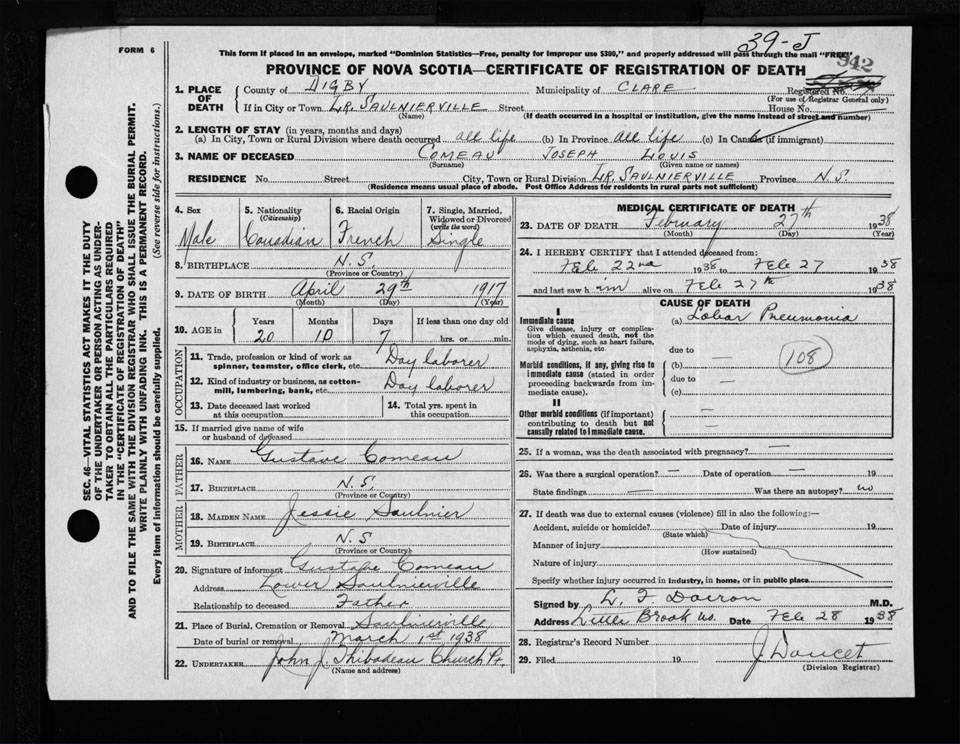 39-J
FORM 6
This form if placed in an envelope, marked "Dominion Statistics—Free, penalty for improper use $300," and properly addressed will pass through the mail "FREE"
942
PROVINCE OF NOVA SCOTIA—CERTIFICATE OF REGISTRATION OF DEATH
1. PLACE OF DEATH
County of DIGBY Municipality of CLARE Registered No.
(For use of Registrar General only)
If in City or Town LR. SAULNIERVILLE Street House No.
(Name) (If death occurred in a hospital or institution, give the name instead of street and number)
2. LENGTH OF STAY (in years, months and days)
(a) In City, Town or Rural Division where death occurred all life (b) In Province all life (c) In Canada (if immigrant)
3. NAME OF DECEASED COMEAU JOSEPH LOUIS
(Surname) (Given name or names)
RESIDENCE No. Street City, Town or Rural Division LR. SAULNIERVILLE Province N.S.
(Residence means usual place of abode. Post Office Address for residents in rural parts not sufficient)
4. Sex Male
5. Nationality (Citizenship) Canadian
6. Racial Origin French
7. Single, Married, Widowed or Divorced (write the word) Single
8. BIRTHPLACE N.S.
(Province or Country)
9. DATE OF BIRTH April 29th 1917
(Month) (Day) (Year)
10. AGE in Years Months Days If less than one day old
20 10 7 hrs. or min.
OCCUPATION
11. Trade, profession or kind of work as spinner, teamster, office clerk, etc. Day laborer
12. Kind of industry or business, as cotton-mill, lumbering, bank, etc. Day laborer
13. Date deceased last worked at this occupation
14. Total yrs. spent in this occupation
15. If married give name of wife or husband of deceased
FATHER
16. NAME Gustave Comeau
17. BIRTHPLACE N.S.
(Province or Country)
MOTHER
18. MAIDEN NAME Jessie Saulnier
19. BIRTHPLACE N.S
(Province or Country)
20. Signature of informant Gustave Comeau
Address Lower Saulnierville
Relationship to deceased Father
21. Place of Burial, Cremation or Removal Saulnierville
Date of burial or removal March 1st 1938
22. UNDERTAKER John J. Thibodeau Church Pt
(Name and address)
MEDICAL CERTIFICATE OF DEATH
23. DATE OF DEATH February 27th 1938
(Month) (Day) (Year)
24. I HEREBY CERTIFY that I attended deceased from:
Feb 22nd 1938 to Feb 27 1938
and last saw h im alive on Feb 27th 1938
CAUSE OF DEATH
I
Immediate cause
Give disease, injury or complication which caused death, not the mode of dying, such as heart failure, asphyxia, asthenia, etc.
(a) Lobar Pneumonia
due to —
108
Morbid conditions, if any, giving rise to immediate cause (stated in order proceeding backwards from immediate cause).
(b)
due to —
(c)
II
Other morbid conditions (if important) contributing to death but not causally related to immediate cause.
—
—
25. If a woman, was the death associated with pregnancy? —
26. Was there a surgical operation? — Date of operation — 19
State findings — Was there an autopsy? no
27. If death was due to external causes (violence) fill in also the following:—
Accident, suicide or homicide? Date of injury 19
(State which)
Manner of injury
(How sustained)
Nature of injury
Specify whether injury occurred in industry, in home, or in public place
Signed by L. F. Doiron M.D.
Address Little Brook NS. Date Feb 28 1938
28. Registrar's Record Number
29. Filed 19 J. Doucet
(Division Registrar)
SEC. 46—VITAL STATISTICS ACT MAKES IT THE DUTY
OF THE UNDERTAKER OR PERSON ACTING AS UNDER-
TAKER TO OBTAIN ALL THE PARTICULARS REQUIRED
IN THE "CERTIFICATE OF REGISTRATION OF DEATH"
AND TO FILE THE SAME WITH THE DIVISION REGISTRAR WHO SHALL ISSUE THE BURIAL PERMIT.
WRITE PLAINLY WITH UNFADING INK. THIS IS A PERMANENT RECORD.
Every item of information should be carefully supplied. (See reverse side for instructions.)